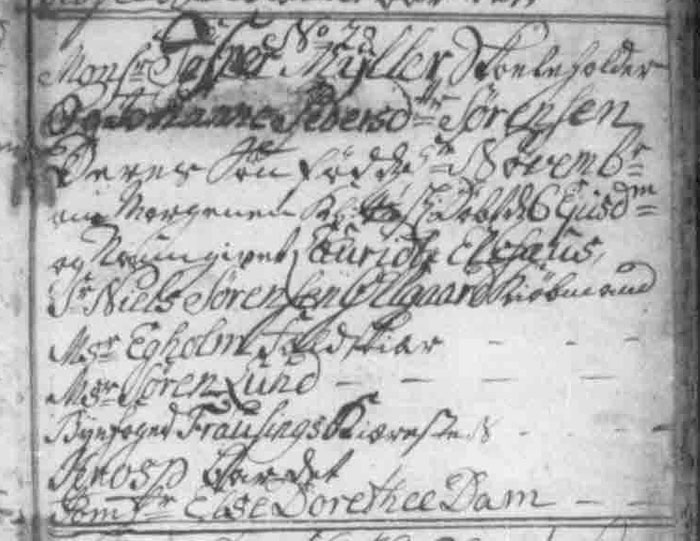 No 78
Monsr Jasper Müller Skoeleholder
Og Johanne Pedersdtr Sørensen
Deres Søn fød d Novembr
om Morgenen Kl Døbt d 6 Ejusdm
og Navngivet Laurids Elisæus
Sr Niels Sørensen Ølgaard Kiøbmand
Msr Egholm
Msr Søren Lund
Byefoged Frausings Kiæreste
bar det
Jomfr Else Dorethee Dam